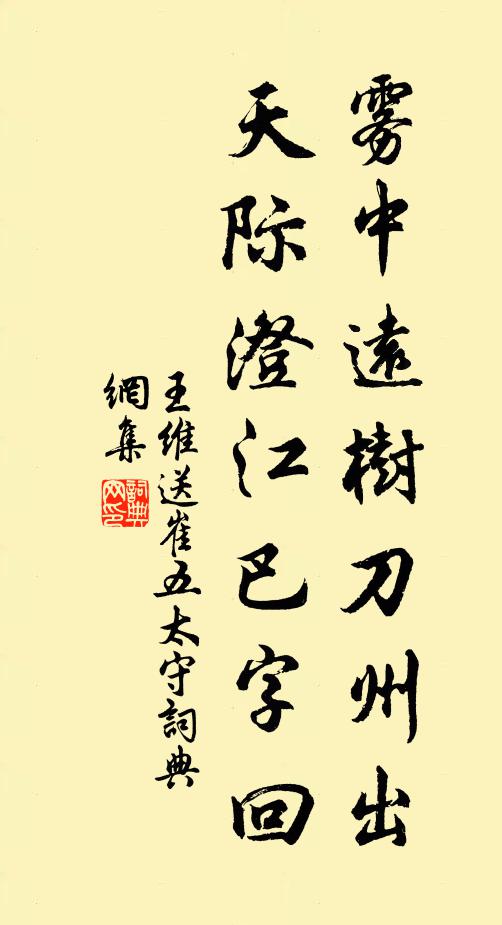 雾中遠樹刀州出
天际澄江巴字回
王维送崔五太守詞典
網集
詞典
网印